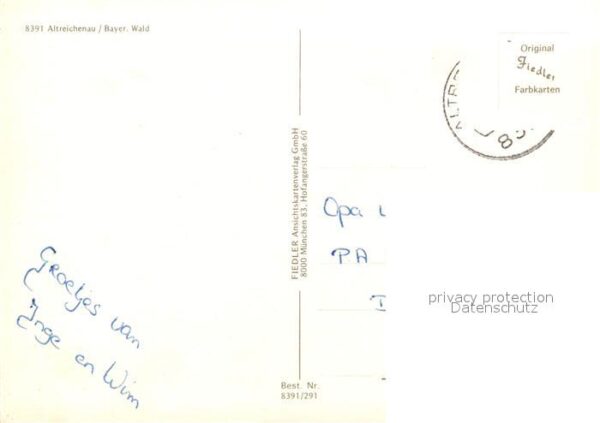 8391 Altreichenau / Bayer. Wald
Original
Fiedler
Farbkarten
FIEDLER Ansichtskartenverlag GmbH
8000 München 83, Hofangerstraße 60
Opa
PA
privacy protection
Datenschutz
Groetjes van
Inge en Wim
Best. Nr.
8391/291